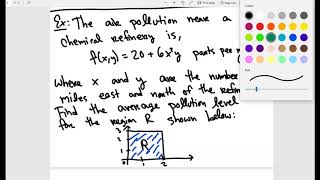 Ex: The air pollution near a
chemical refinery is,
f(x,y) = 20 + 6x²y parts per
where x and y are the number
miles east and north of the refin
Find the average pollution level
for the region R shown below:
3
2
1
R
0 1 2